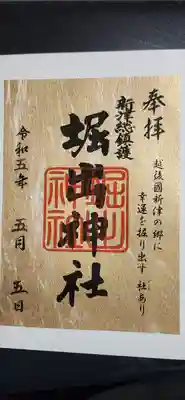 奉拝
越後國新津の郷に
幸運を掘り出す 社あり
新津総鎮護
堀出神社
令和五年 五月 五日